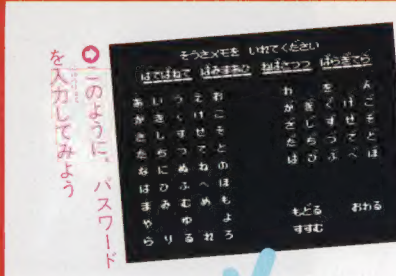 ➲このように、パスワード
を入力してみよう
そうさメモを いれてください
はてばねて ばみすあひ ねばさつつ ばらぎてら
あ い う え お
か き く け こ
さ し す せ そ
た ち つ て と
な に ぬ ね の
は ひ ふ へ ほ
ま み む め も
や ゆ よ
ら り る れ ろ
わ を ん
が ぎ ぐ げ ご
ざ じ ず ぜ ぞ
だ ぢ づ で ど
ば び ぶ べ ぼ
もどる おわる
すすむ